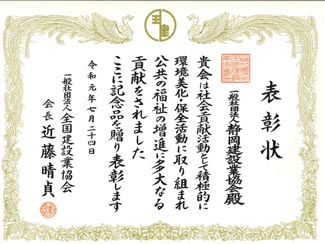 表彰状
一般社団法人静岡建設業協会殿
貴会は社会貢献活動として積極的に
環境美化・保全活動に取り組まれ
公共の福祉の増進に多大なる
貢献をされました
ここに記念品を贈り表彰します
令和元年七月二十四日
一般社団法人全国建設業協会
会長近藤晴貞